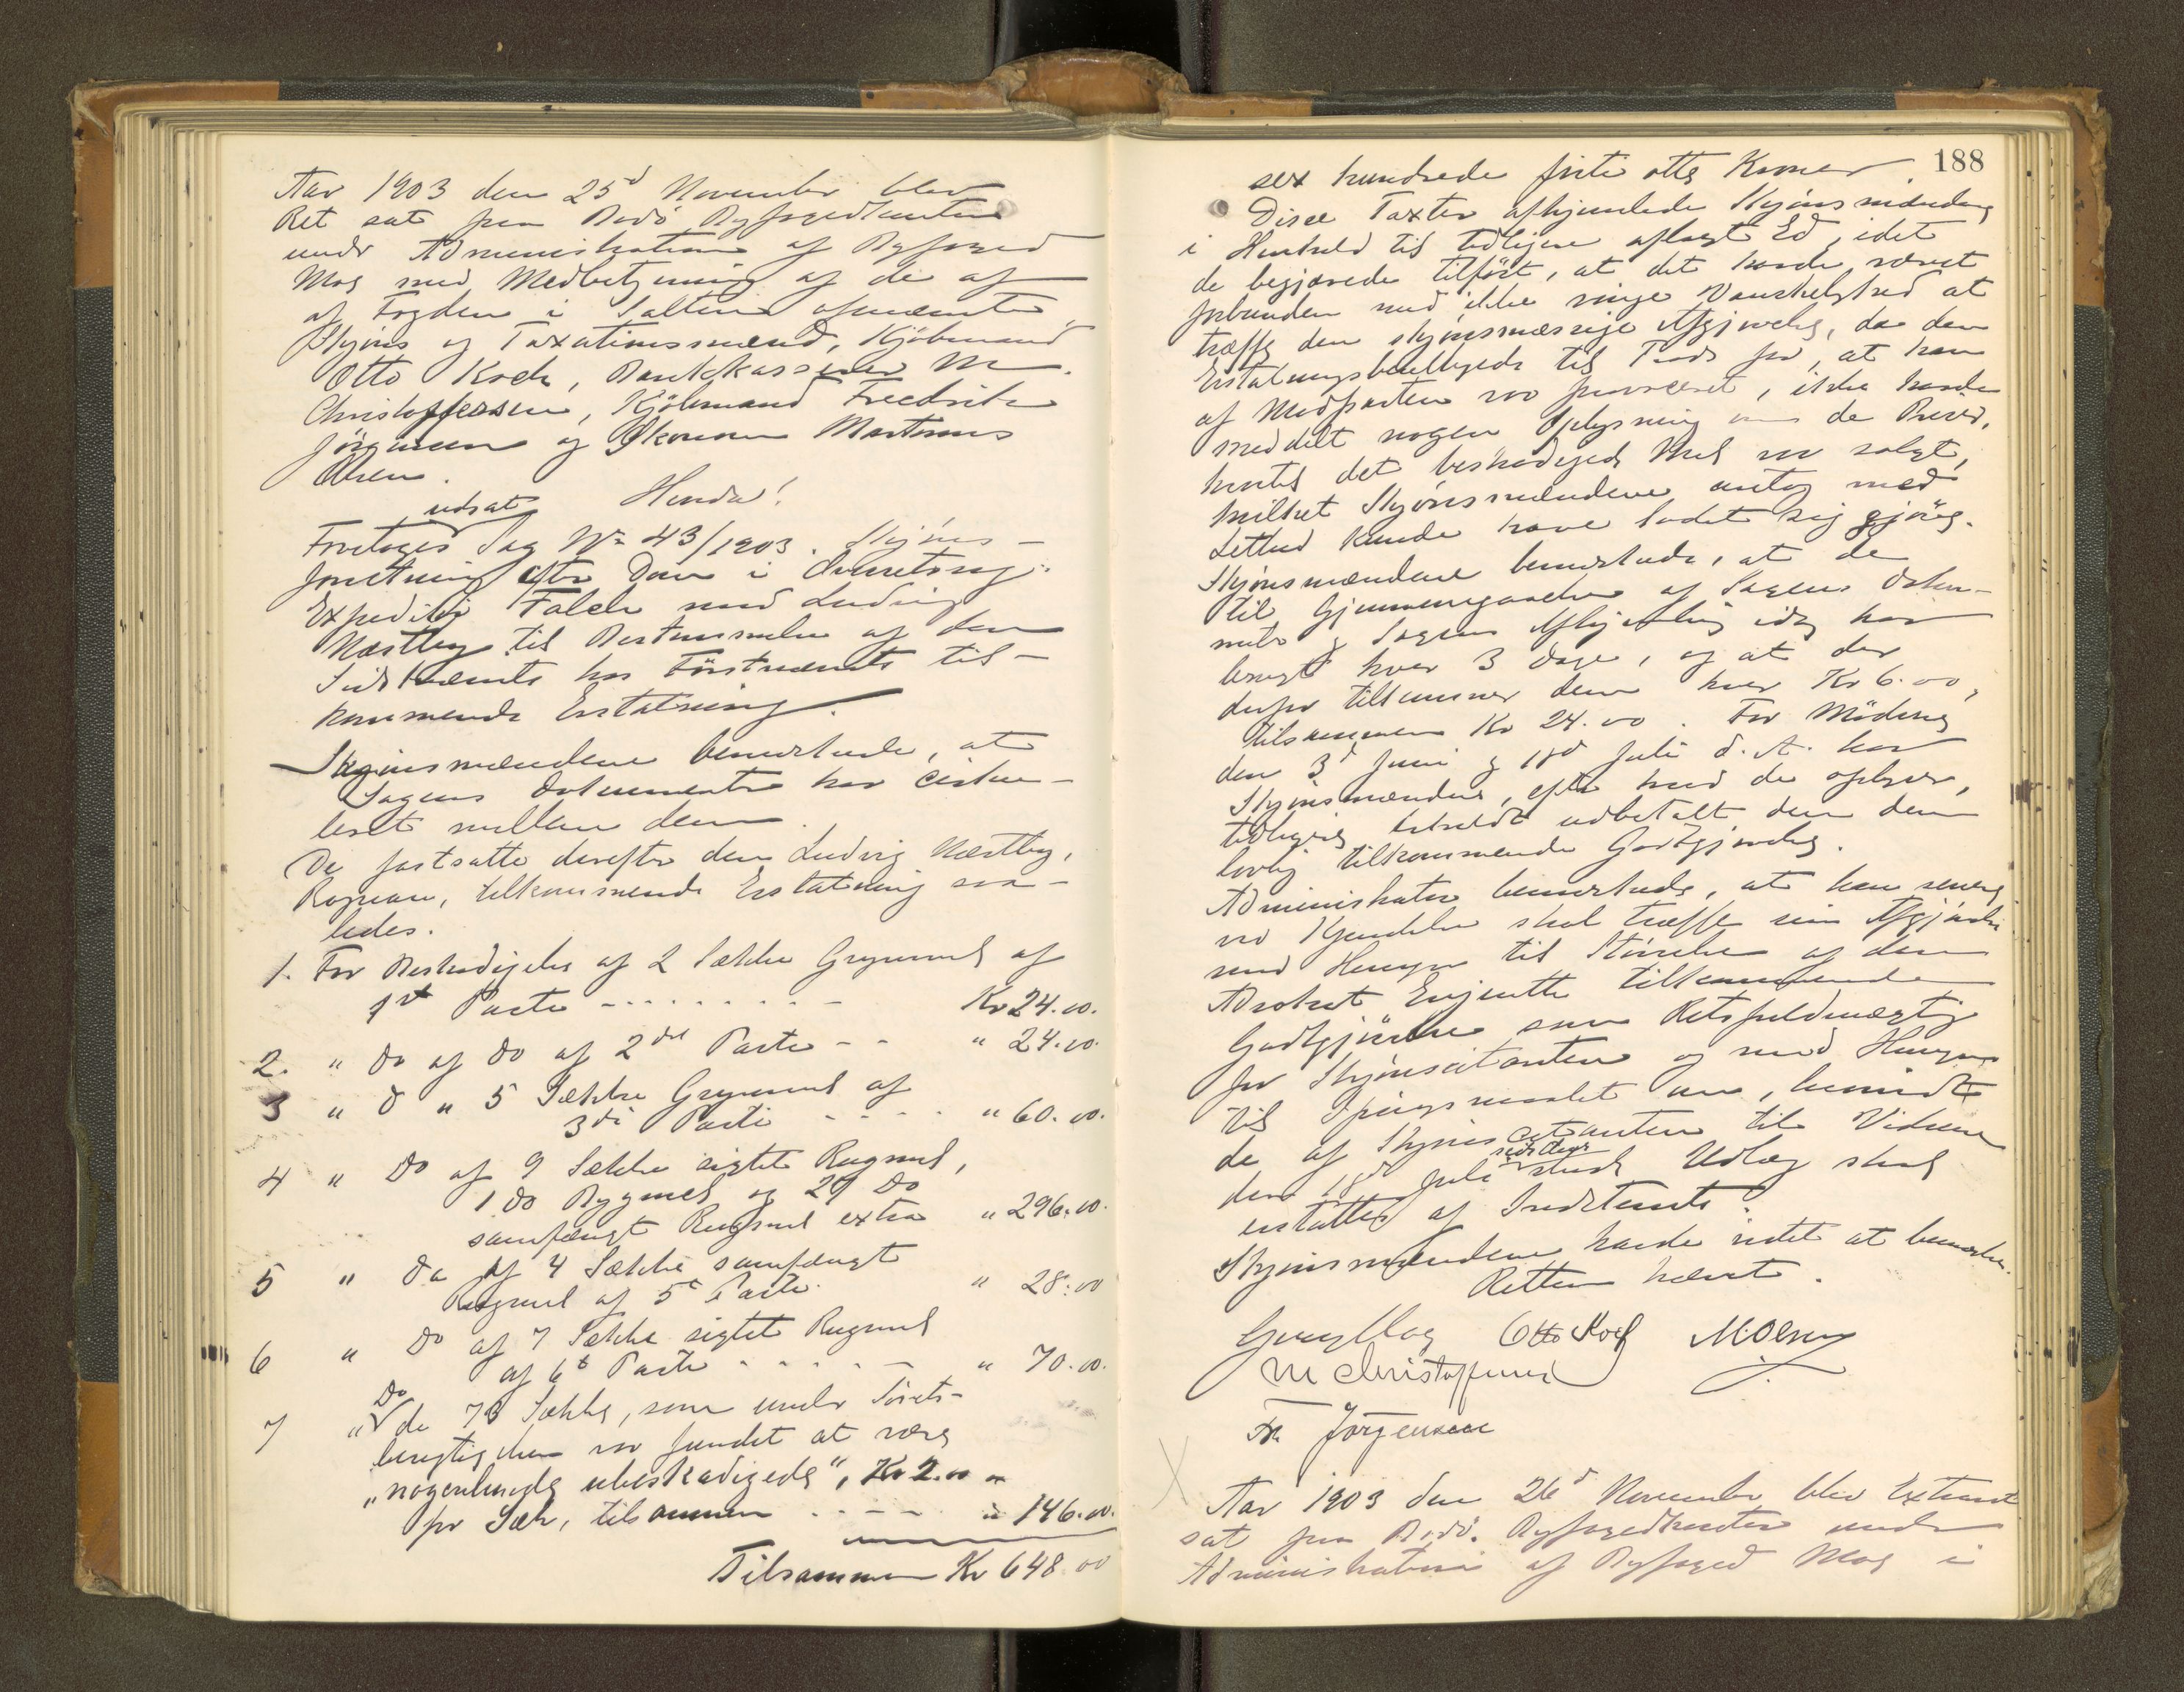 Aar 1903 den 25d November blev
Ret sat paa Bodö Byfogedkontor
under Administration af Byfoged
Mog med Medbetjening af de af
af Fogden i Salten opnævnte
Skjöns og Taxationsmænd, Kjöbmand
Otto Koch, Bankkasserer M.
Christoffersen, Kjöbmand Fredrik
Jörgensen og Skomager Martinus
Olsen.
Hvorda!
udsat
Foretoges Sag No 43/1903. Skjöns-
forretning efter Dom i Overretssag:
Expeditör Falch mod Ludvig
Næstby til Bestemmelse af den
Sidstnævnte hos Förstnævnte til-
kommende Erstatning.
Skjönsmændene bemærkede, at
Sagens Dokumenter har cirku-
leret mellem dem.
De fastsatte derefter den Ludvig Næstby,
Rognan, tilkommende Erstatning saa-
ledes.
1. For Beskadigelse af 2 Sække Grynmel af
1st Parti - - - - - - - - Kr 24.00.
2. " Do af Do af 2det Parti - - " 24.00.
3 " D " 5 Sække Grynmel af
3die Parti - - - - " 60.00.
4 " Do af 9 Sække sigtet Rugmel,
1 do Bygmel og 29 Do
samfængt Rugmel extra " 296.00.
5 " Do af 4 Sække samfængt
Rugmel af 5t Parti. " 28.00
6 " Do af 7 Sække sigtet Rugmel
af 6t Parti - - - - - " 70.00.
Do
7 " de 73 Sække, som under Sörets-
besigtigelsen var fundet at være
"nogenlunde ubeskadigede", Kr 2.00
pr Sæk, tilsammen - - - - " 146.00.
Tilsammen Kr 648.00
188
sex hundrede förti otte Kroner
Disse Taxter afhjemlede Skjönsmændene
i Henhold til tidligere aflagt Ed, idet
de begjærede tilfört, at det havde været
forbunden med ikke ringe Vanskelighed at
træffe den skjönsmæssige Afgjörelse, da den
Erstatningsberettigede til Trods for, at han
af Modparten var provoceret, ikke havde
meddelt nogen Oplysning om de Priser,
hvortil det beskadigede Mel var solgt,
hvilket Skjönsmændene antog med
Lethed kunde have ladet sig gjöre.
Skjönsmændene bemærkede, at de
til Gjennemgaaelse af Sagens Doku-
menter og Sagens Afhjemling idag har
brugt hver 3 Dage, og at der
derfor tilkommer dem hver Kr 6.00,
tilsammen Kr 24.00. For Mödene
den 3d Juni og 18d Juli d. A. har
Skjönsmændene, efter hvad de oplyser,
tidligere erholdt udbetalt den dem
lovlig tilkommende Godtgjörelse.
Administrator bemærkede, at han senere
ved Kjendelse skal træffe sin Afgjörelse
med Hensyn til Störrelse af den
Advokat tilkommende
Godtgjörelse som Retsfuldmægtig
for Skjönscitanten og med Hensyn
til Spörgsmaalet om, hvorvidt
de af Skjönscitanten til Vidnerne
den 18d Juli Udlæg skal
erstattes af Indstevnte.
Skjönsmændene havde intet at bemærke.
Retten hævet.
Mog Otto Koch M. Olsen
M Christoffersen
Fr. Jörgensen
X
Aar 1903 den 26d November blev Extraret
sat paa Bodö Byfogedkontor under
Administration af Byfoged Mog i